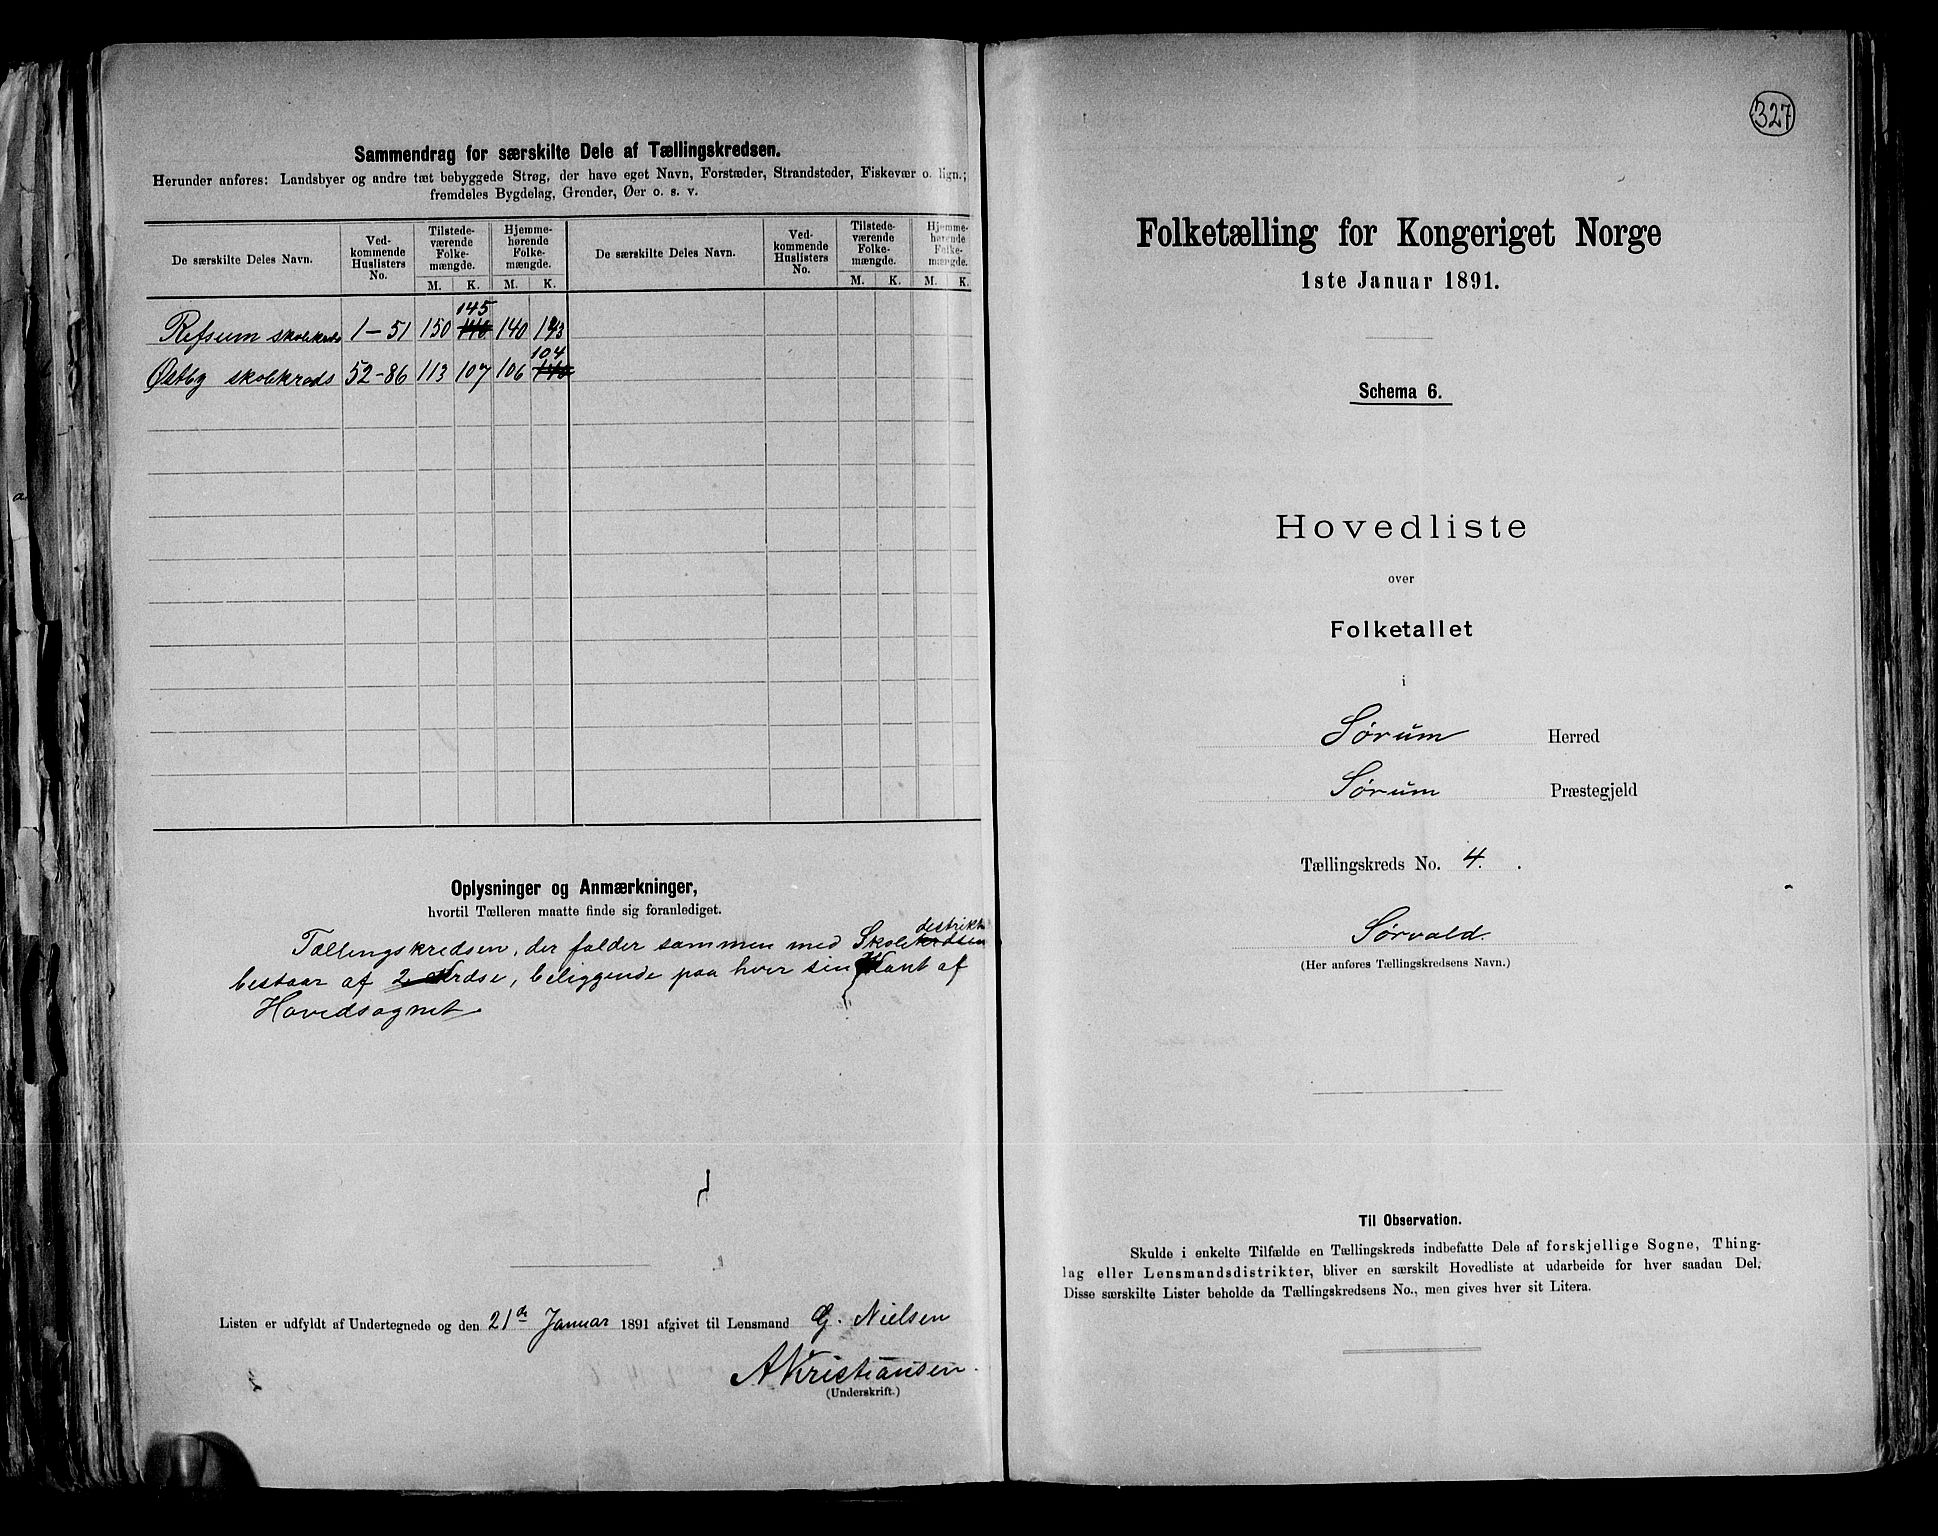 Sammendrag for særskilte Dele af Tællingskredsen.
Herunder anføres: Landsbyer og andre tæt bebyggede Strøg, der have eget Navn, Forstæder, Strandsteder, Fiskevær o. lign.;
fremdeles Bygdelag, Grender, Øer o. s. v.
De særskilte Deles Navn. Ved-kommende Huslisters No. Tilstede-værende Folke-mængde. Hjemme-hørende Folke-mængde. De særskilte Deles Navn. Ved-kommende Huslisters No. Tilstede-værende Folke-mængde. Hjemme-hørende Folke-mængde.
M. K. M. K. M. K. M. K.
145
Refsum skolekreds 1-51 150 140 140 143
104
Østby skolekreds 52-86 113 107 106 140
Oplysninger og Anmærkninger,
hvortil Tælleren maatte finde sig foranlediget.
distrikt
Tællingskredsen, der falder sammen med Skolekredsen
bestaar af 2 Kredse, beliggende paa hver sin Kant af
Hovedsognet
Listen er udfyldt af Undertegnede og den 21de Januar 1891 afgivet til Lensmand G. Nielsen
A Kristiansen
(Underskrift.)
327
Folketælling for Kongeriget Norge
1ste Januar 1891.
Schema 6.
Hovedliste
over
Folketallet
i
Sørum Herred
Sørum Præstegjeld
Tællingskreds No. 4.
Sørvald.
(Her anføres Tællingskredsens Navn.)
Til Observation.
Skulde i enkelte Tilfælde en Tællingskreds indbefatte Dele af forskjellige Sogne, Thing-
lag eller Lensmandsdistrikter, bliver en særskilt Hovedliste at udarbeide for hver saadan Del.
Disse særskilte Lister beholde da Tællingskredsens No., men gives hver sit Litera.